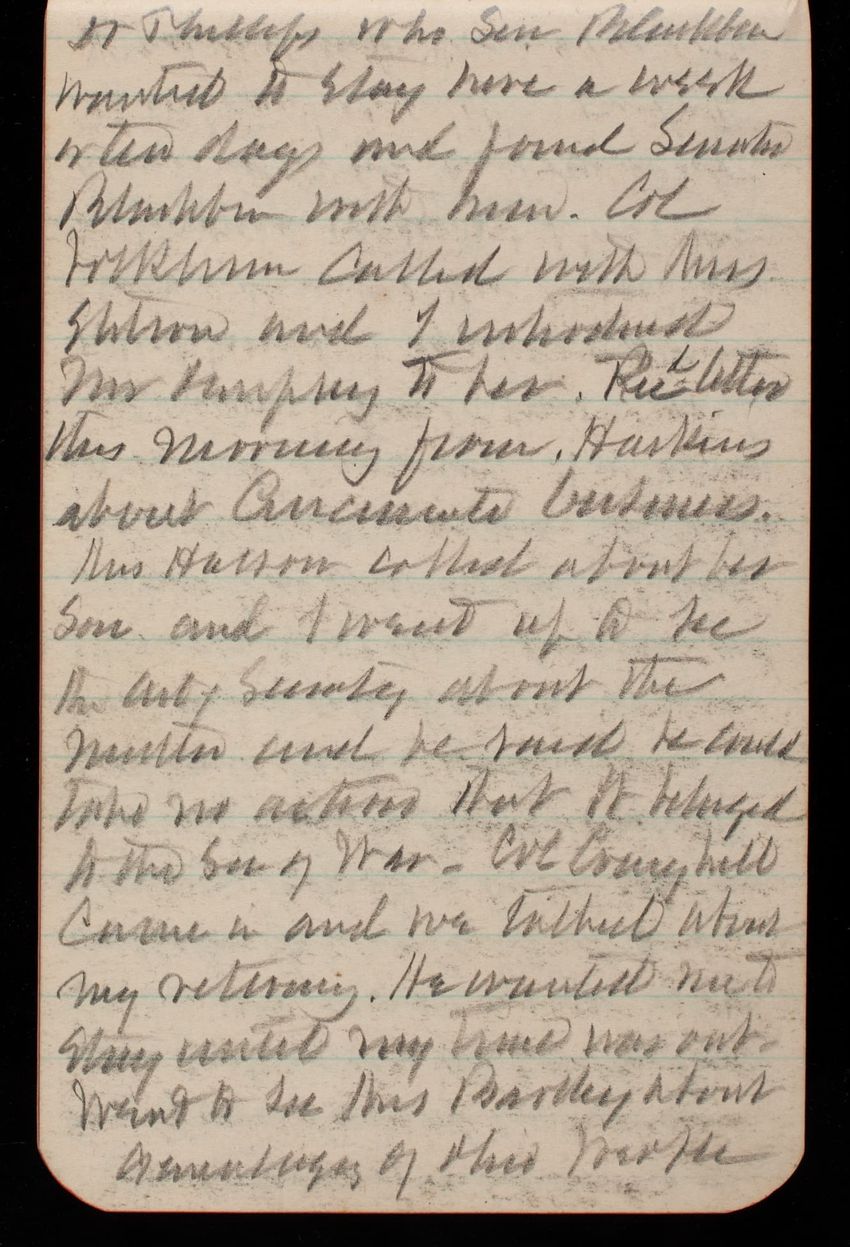 Dr Phillips who Sen Blackburn
wanted to stay here a week
or ten days and found Senator
Blackburn with him. Col
called with Mrs
Stetson and I introduced
Mr Humphrey to her. Recd letter
this morning from, Haskins
about Cincinnati business.
Mrs called about her
Son and I went up to see
the Actg Secretary about the
matter and he said he could
take no action that it belonged
to the Sec of War - Col Craighill
Came in and we talked about
my retiring. He wanted me to
Stay until my time was out -
Went to see Mrs Bartley about
genealogy of Ohio people